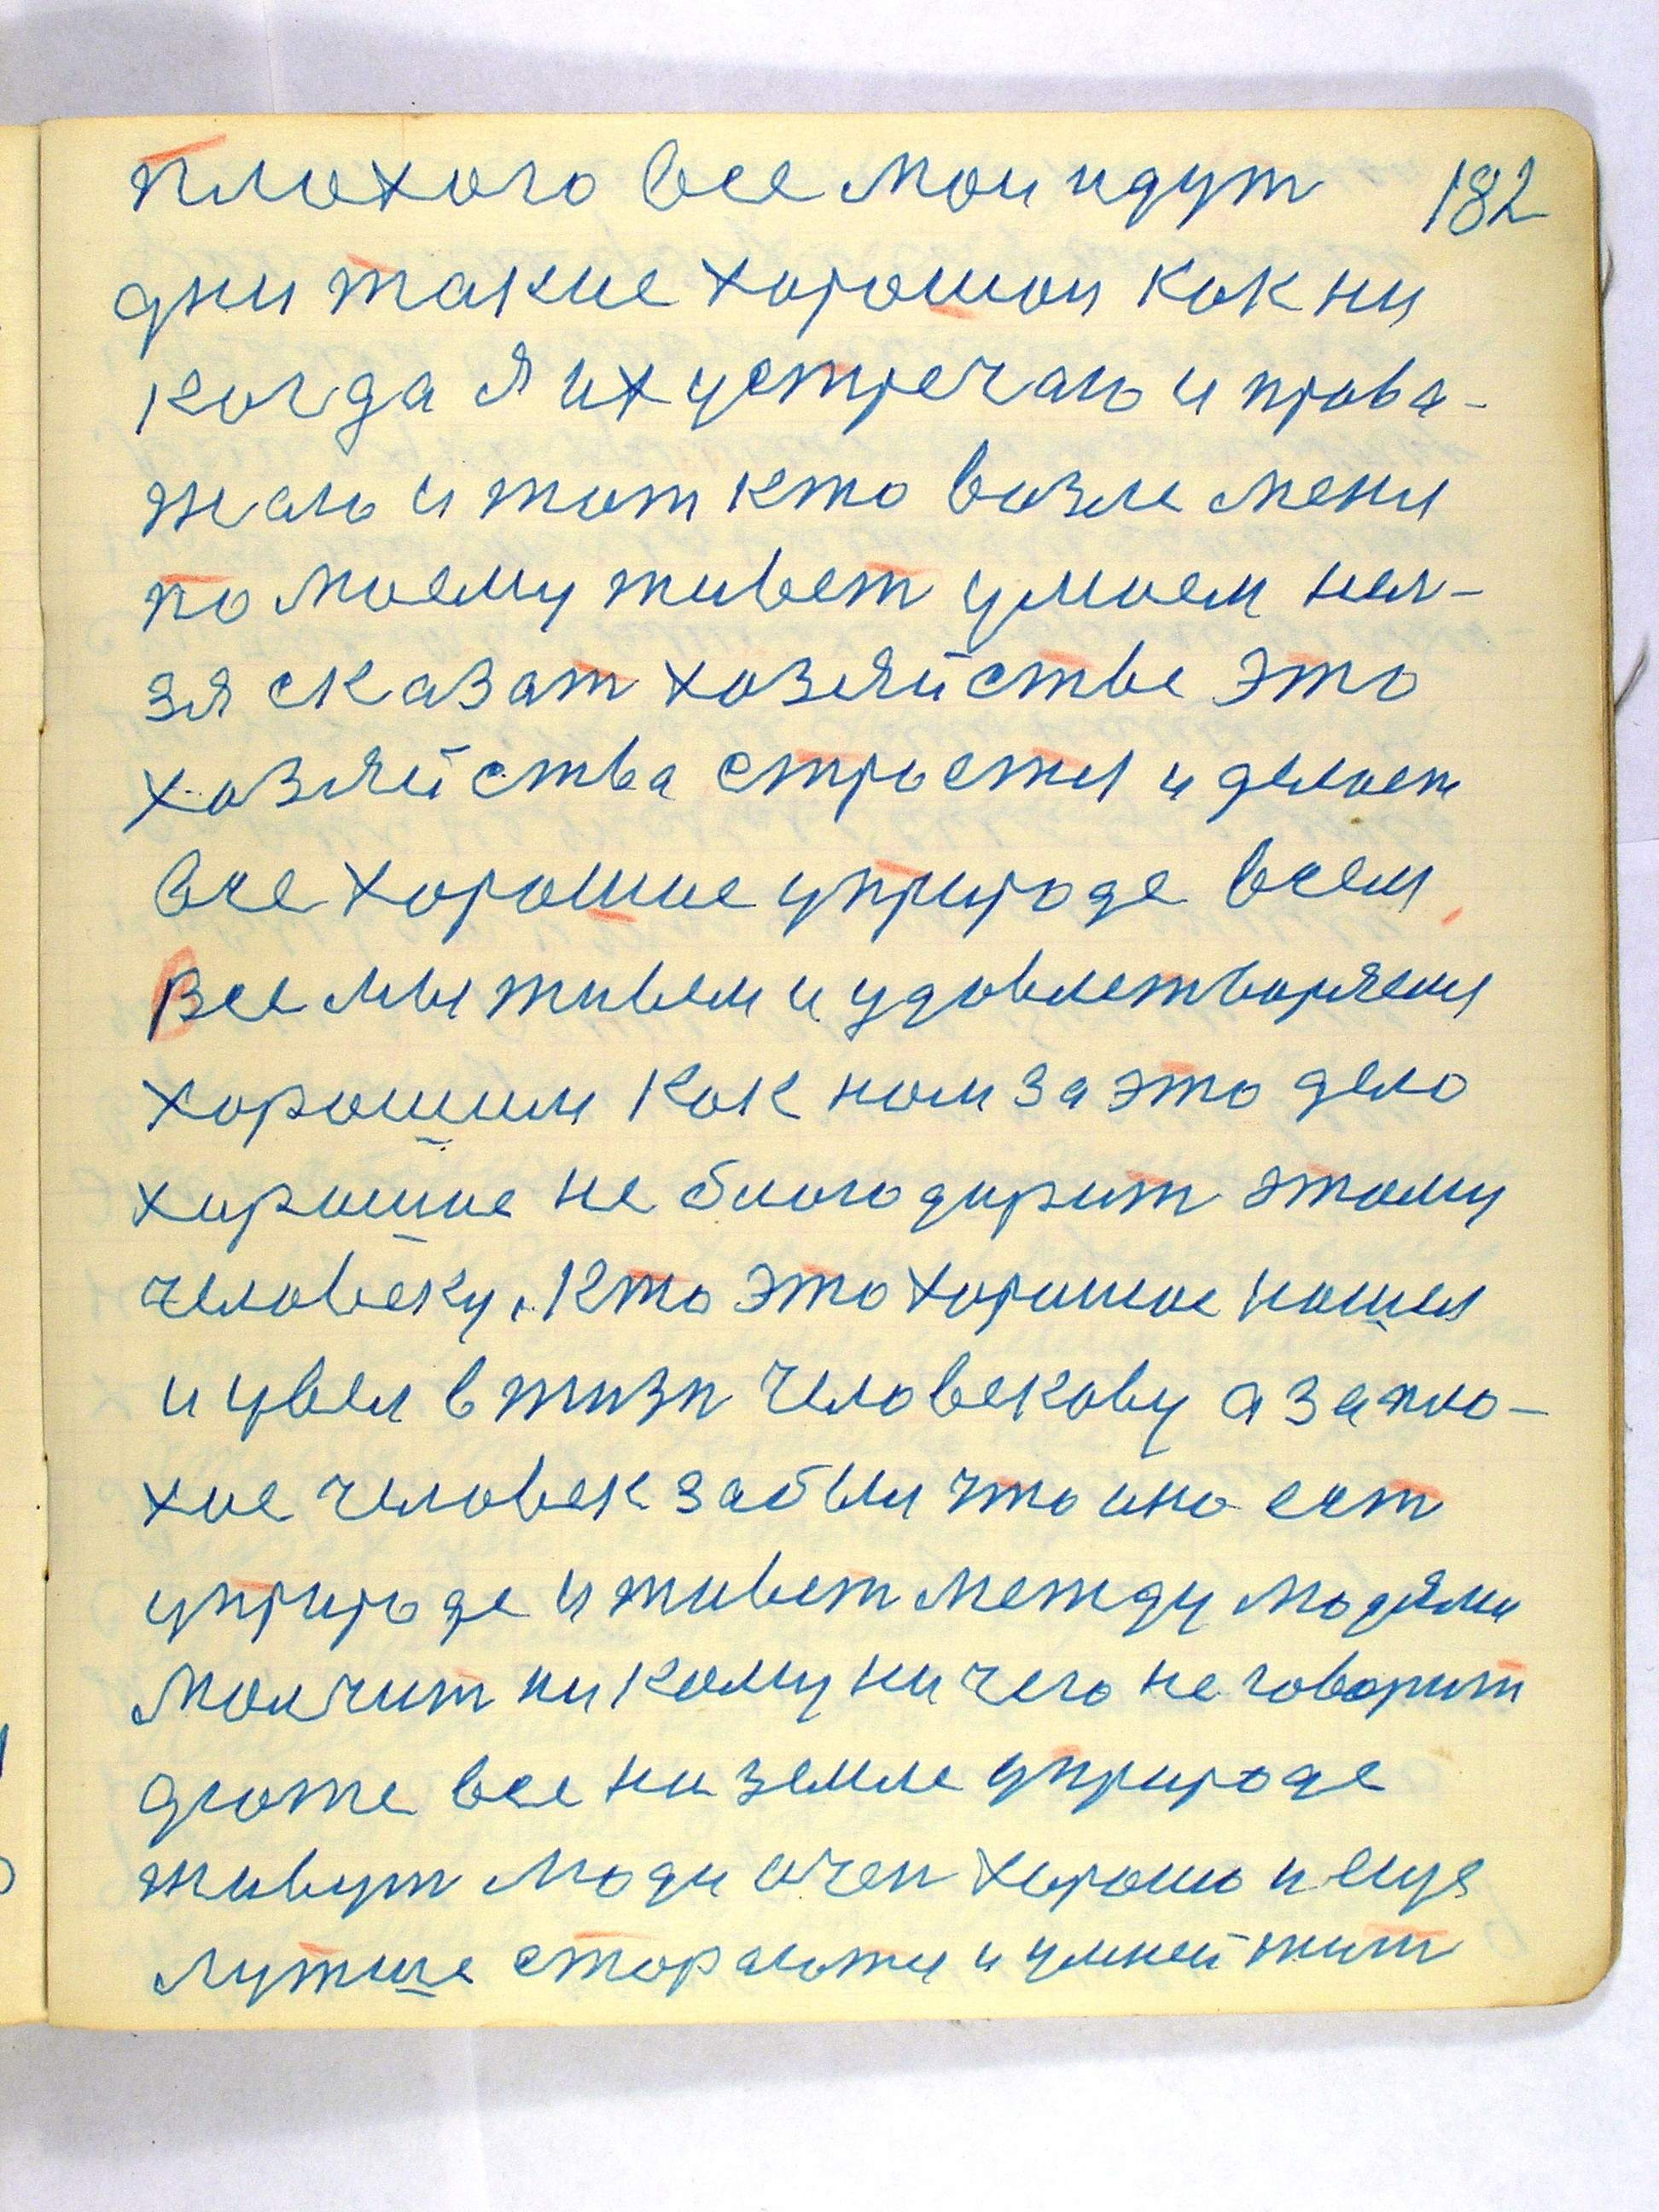 плохого все мои идут 182
дни такие хорошои как ни
когда я их устречаю и прова-
жаю и тот кто возле меня
по моему живет умоем нел-
зя сказат хозяйстве это
хозяйства стростя и делает
все хорошие уприроде всем
Все мы живем и удовлетворяемя
хорошим как ном за это дело
хорошие не благодарит этому
человеку, кто это хорошое нашел
и увел в жизн человекову а за пло-
хие человек забыл что оно ест
уприроде и живет между людями
молчит ни кому ни чего не говорит
доже все на земле уприроде
живут люди очен хорошо и еще
лутше стораютя и умней жит